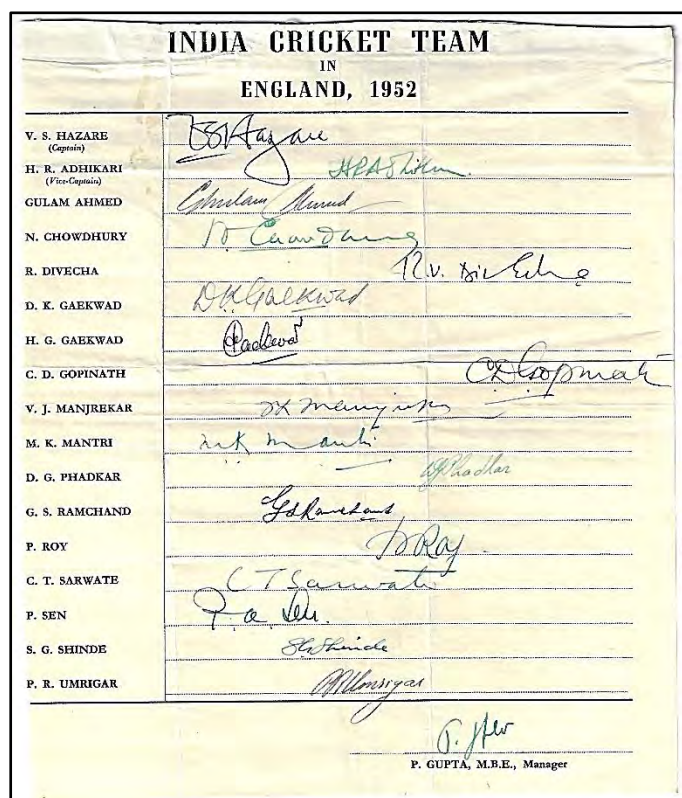 INDIA CRICKET TEAM
IN
ENGLAND, 1952
V. S. HAZARE VS Hazare
(Captain)
H. R. ADHIKARI HRAdhikari
(Vice-Captain)
GULAM AHMED Ghulam Ahmed
N. CHOWDHURY N Chowdhury
R. DIVECHA R.V. Divecha
D. K. GAEKWAD DKGaekwad
H. G. GAEKWAD Gaekwad
C. D. GOPINATH CDGopinath
V. J. MANJREKAR Manjrekar
M. K. MANTRI MK Mantri
D. G. PHADKAR DGPhadkar
G. S. RAMCHAND GSRamchand
P. ROY P Roy
C. T. SARWATE C T Sarwate
P. SEN P. Sen.
S. G. SHINDE SGShinde
P. R. UMRIGAR PRUmrigar
P. GUPTA, M.B.E., Manager